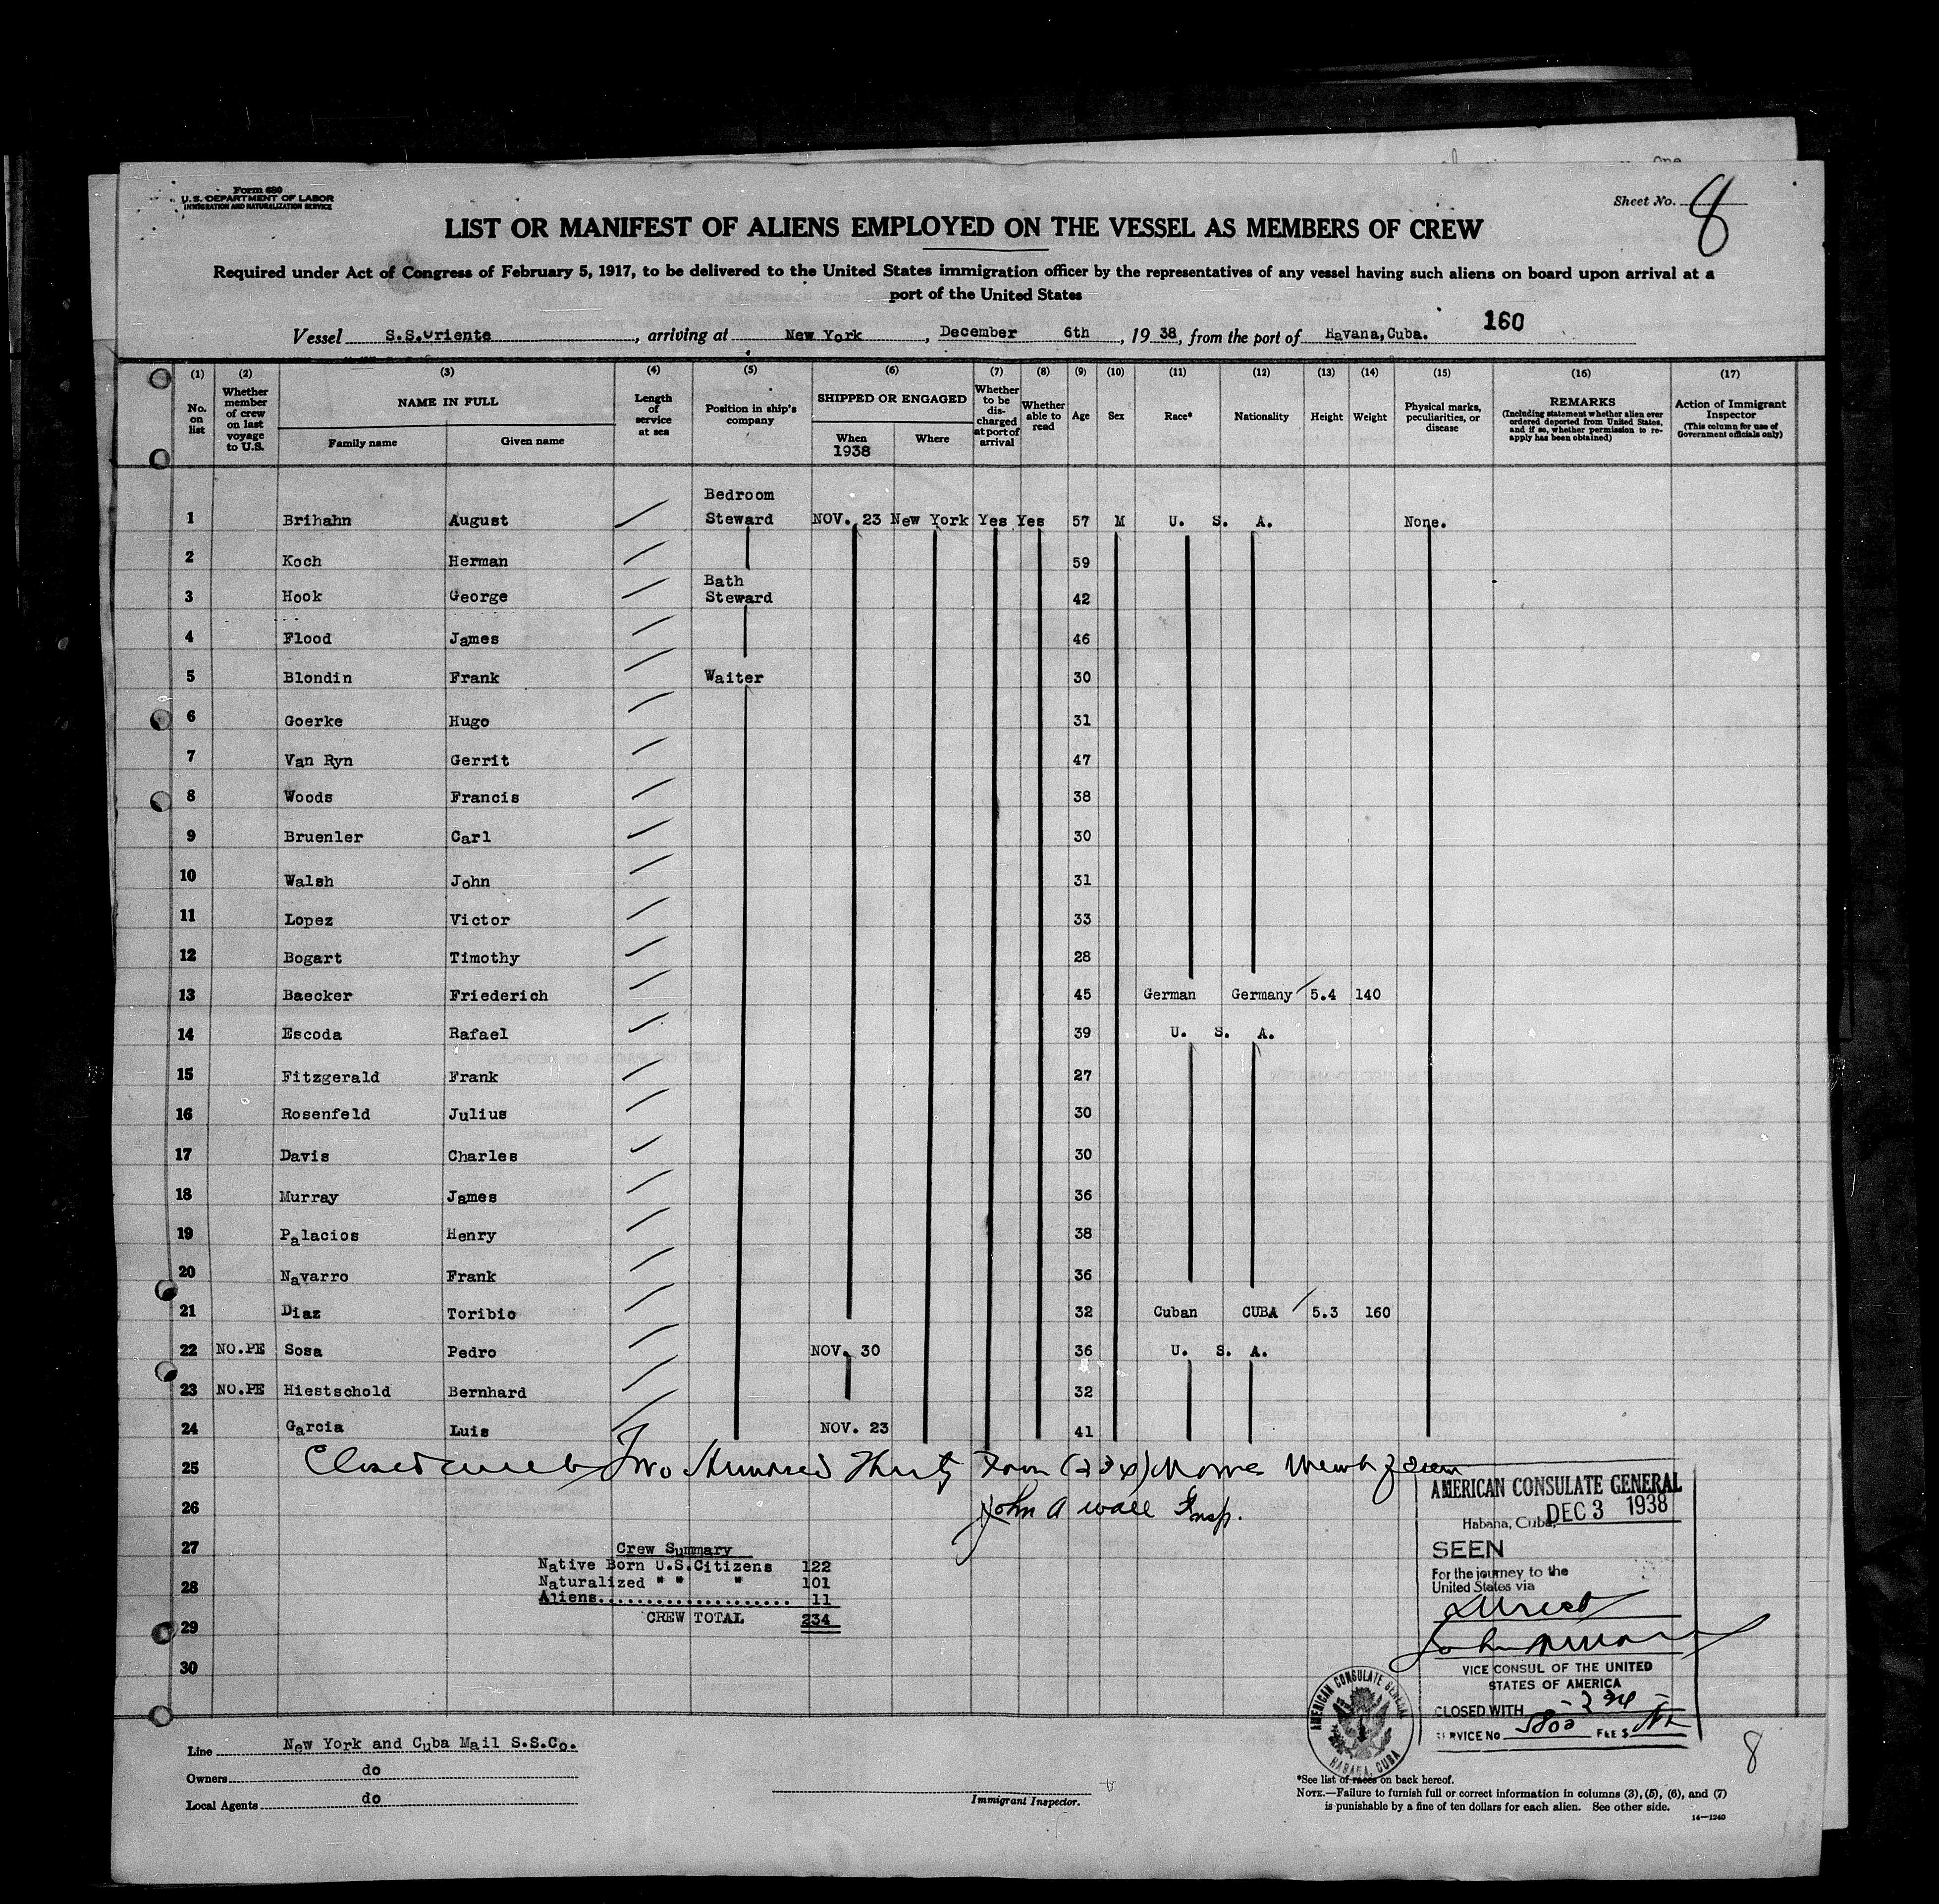 Form 680
U.S. DEPARTMENT OF LABOR
IMMIGRATION AND NATURALIZATION SERVICE
Sheet No. 8
LIST OR MANIFEST OF ALIENS EMPLOYED ON THE VESSEL AS MEMBERS OF CREW
Required under Act of Congress of February 5, 1917, to be delivered to the United States immigration officer by the representatives of any vessel having such aliens on board upon arrival at a
port of the United States
Vessel S.S.Oriente, arriving at New York, December 6th, 19 38, from the port of Havana, Cuba. 160
(1) (2) (3) (4) (5) (6) (7) (8) (9) (10) (11) (12) (13) (14) (15) (16) (17)
No. on list
Whether member of crew on last voyage to U.S.
NAME IN FULL
Family name Given name
Length of service at sea
Position in ship's company
SHIPPED OR ENGAGED
When 1938 Where
Whether to be discharged at port of arrival
Whether able to read
Age Sex Race* Nationality Height Weight
Physical marks, peculiarities, or disease
REMARKS
(Including statement whether alien ever ordered deported from United States, and if so, whether permission to reapply has been obtained)
Action of Immigrant Inspector
(This column for use of Government officials only)
1 Brihahn August Bedroom Steward NOV. 23 New York Yes Yes 57 M U. S. A. None.
2 Koch Herman 59
3 Hook George Bath Steward 42
4 Flood James 46
5 Blondin Frank Waiter 30
6 Goerke Hugo 31
7 Van Ryn Gerrit 47
8 Woods Francis 38
9 Bruenler Carl 30
10 Walsh John 31
11 Lopez Victor 33
12 Bogart Timothy 28
13 Baecker Friederich 45 German Germany 5.4 140
14 Escoda Rafael 39 U. S. A.
15 Fitzgerald Frank 27
16 Rosenfeld Julius 30
17 Davis Charles 30
18 Murray James 36
19 Palacios Henry 38
20 Navarro Frank 36
21 Diaz Toribio 32 Cuban CUBA 5.3 160
22 NO.PE Sosa Pedro NOV. 30 36 U. S. A.
23 NO.PE Hiestschold Bernhard 32
24 Garcia Luis NOV. 23 41
25 Closed Two Hundred Thirty Four (234)
26 John A Wall Insp.
27 Crew Summary
Native Born U.S.Citizens 122
28 Naturalized " " " 101
Aliens..................... 11
29 CREW TOTAL 234
30
AMERICAN CONSULATE GENERAL
Habana, Cuba, DEC 3 1938
SEEN
For the journey to the
United States via
Direct
VICE CONSUL OF THE UNITED
STATES OF AMERICA
CLOSED WITH -234-
SERVICE No 5800 FEE $
AMERICAN CONSULATE GENERAL HABANA, CUBA
8
Line New York and Cuba Mail S.S.Co.
Owners do
Local Agents do
Immigrant Inspector.
*See list of races on back hereof.
NOTE.—Failure to furnish full or correct information in columns (3), (5), (6), and (7)
is punishable by a fine of ten dollars for each alien. See other side.
14—1240